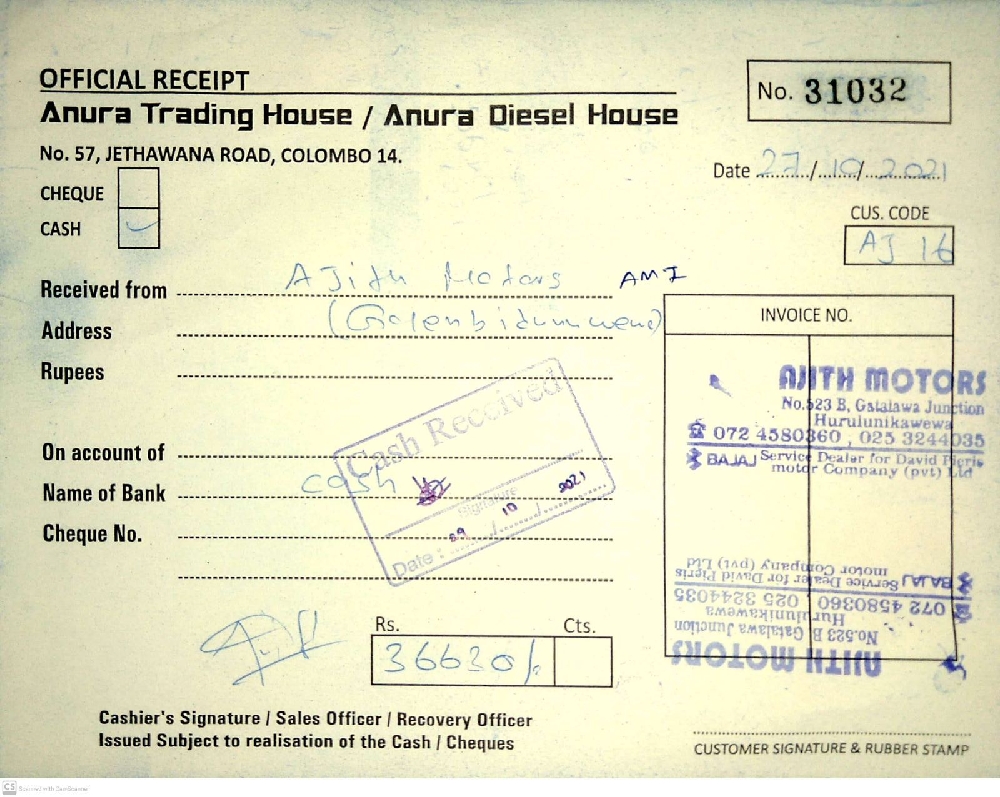 OFFICIAL RECEIPT
No. 31032
Anura Trading House / Anura Diesel House
No. 57, JETHAWANA ROAD, COLOMBO 14.
Date 27/10/2021
CHEQUE
CASH
CUS. CODE
AJ 16
Received from Ajith Motors AMI
Address
Rupees
INVOICE NO.
AJITH MOTORS
No.523 B, Gatalawa Junction
Hurulunikawewa
072 4580360 , 025 3244035
BAJAJ Service Dealer for David Pieris
motor Company (pvt) Ltd
Cash Received
Signature
Date : 29/10/2021
On account of
Name of Bank cash
Cheque No.
AJITH MOTORS
No.523 B Gatalawa Junction
Hurulunikawewa
072 4580360 , 025 3244035
BAJAJ Service Dealer for David Pieris
motor Company (pvt) Ltd
Rs. Cts.
36630/-
Cashier's Signature / Sales Officer / Recovery Officer
Issued Subject to realisation of the Cash / Cheques
CUSTOMER SIGNATURE & RUBBER STAMP
CS Scanned with CamScanner